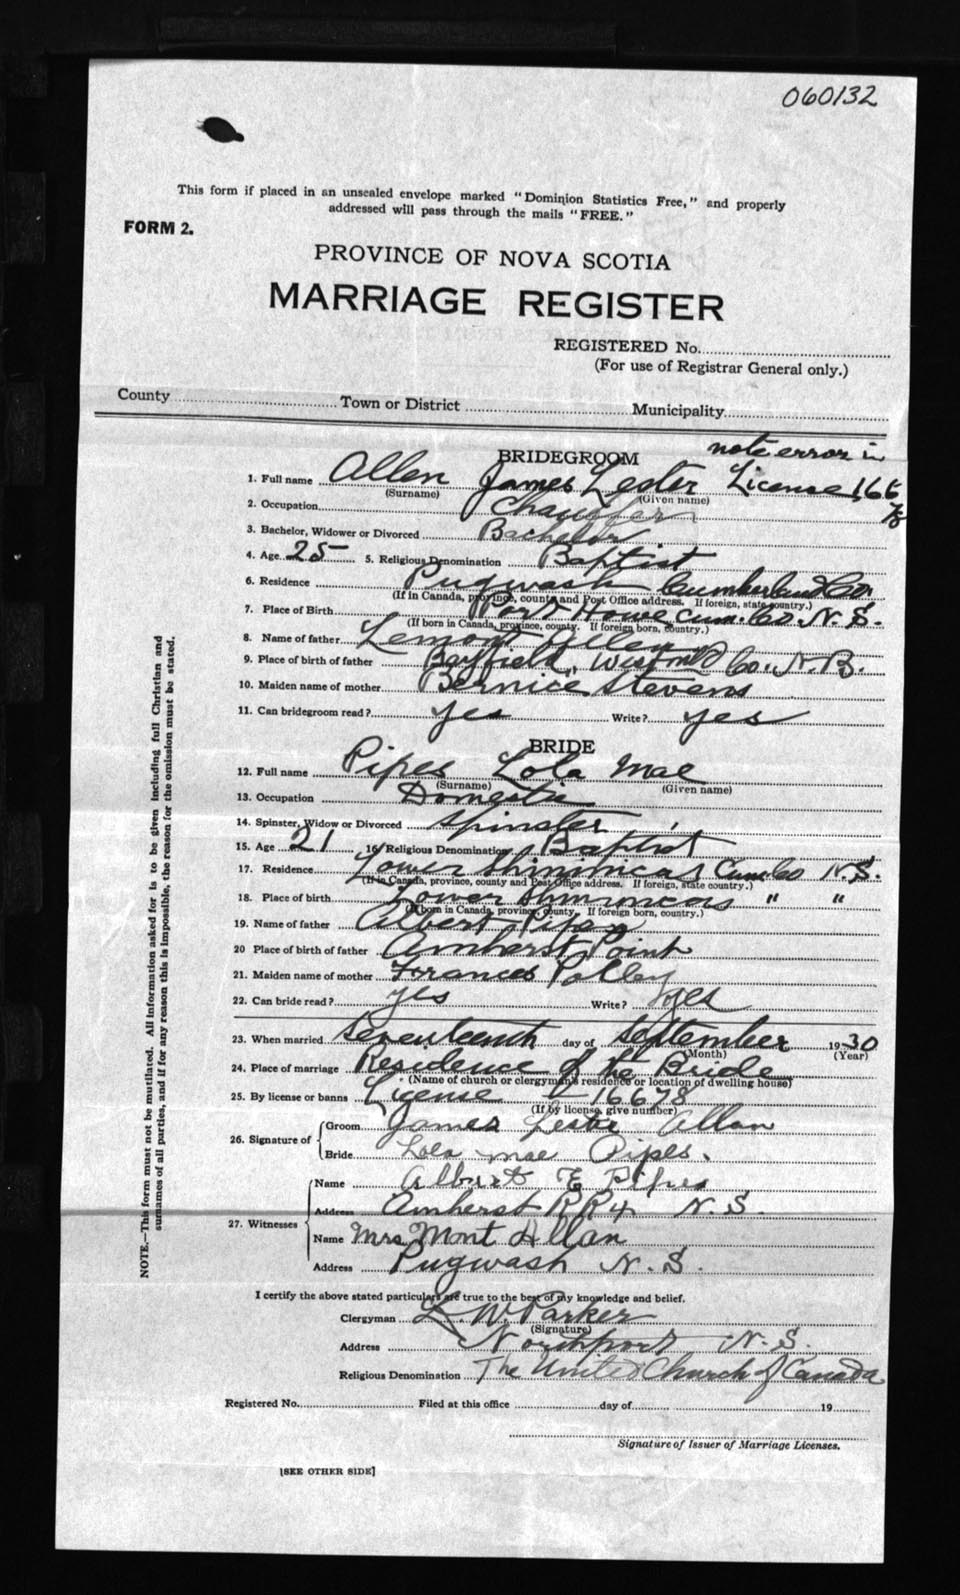 060132
This form if placed in an unsealed envelope marked "Dominion Statistics Free," and properly
addressed will pass through the mails "FREE."
FORM 2.
PROVINCE OF NOVA SCOTIA
MARRIAGE REGISTER
REGISTERED No.
(For use of Registrar General only.)
County Town or District Municipality
BRIDEGROOM note error in
1. Full name Allen James Lester License 166
(Surname) (Given name) 78
2. Occupation Chauffer
3. Bachelor, Widower or Divorced Bachelor
4. Age 25 5. Religious Denomination Baptist
6. Residence Pugwash Cumberland Co
(If in Canada, province, county and Post Office address. If foreign, state country.)
7. Place of Birth Port Howe Cum. Co. N.S.
(If born in Canada, province, county. If foreign born, country.)
8. Name of father Lemont Allen
9. Place of birth of father Bayfield, Westm'd Co. N.B.
10. Maiden name of mother Bernice Stevens
11. Can bridegroom read? yes Write? yes
BRIDE
12. Full name Pipes Lola Mae
(Surname) (Given name)
13. Occupation Domestic
14. Spinster, Widow or Divorced Spinster
15. Age 21 16 Religious Denomination Baptist
17. Residence Lower Shinimicas Cum Co N.S.
(If in Canada, province, county and Post Office address. If foreign, state country.)
18. Place of birth Lower Shinimicas " "
(If born in Canada, province, county. If foreign born, country.)
19. Name of father Albert Pipes
20 Place of birth of father Amherst Point
21. Maiden name of mother Frances Polley
22. Can bride read? yes Write? yes
23. When married seventeenth day of September 1930
(Month) (Year)
24. Place of marriage Residence of the Bride
(Name of church or clergyman's residence or location of dwelling house)
25. By license or banns License 16678
(If by license, give number)
26. Signature of Groom James Leslie Allan
Bride Lola Mae Pipes.
27. Witnesses Name Albert E Pipes
Address Amherst RR4 N.S.
Name Mrs Mont Allan
Address Pugwash N.S.
I certify the above stated particulars are true to the best of my knowledge and belief.
Clergyman L. W. Parker
(Signature)
Address Northport N.S.
Religious Denomination The United Church of Canada
Registered No. Filed at this office day of 19
Signature of Issuer of Marriage Licenses.
[SEE OTHER SIDE]
NOTE.—This form must not be mutilated. All information asked for is to be given including full Christian and
surnames of all parties, and if for any reason this is impossible, the reason for the omission must be stated.